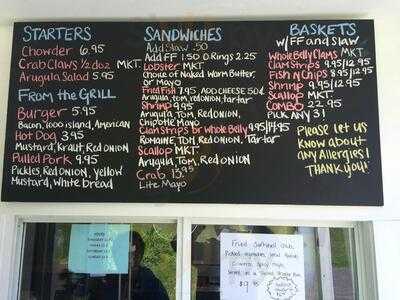 STARTERS
Chowder 6.95
Crab Claws ½ doz MKT.
Arugula Salad 5.95
From the GRILL
Burger 5.95
Bacon, 1000 island, American
Hot Dog 3.95
Mustard, Kraut, Red onion
Pulled Pork 9.95
Pickles, Red onion, yellow
Mustard, White Bread
SANDWICHES
Add Slaw .50
Add FF 1.50 O.Rings 2.25
Lobster MKT.
Choice of Naked, Warm Butter,
or Mayo
Fried Fish 7.95 ADD CHEESE 50¢
Arugula, tom, red onion, tartar
Shrimp 9.95
Arugula, Tom, Red onion,
Chipotle Mayo
Clam Strips or Whole Belly 9.95/14.95
Romaine, Tom, Red onion, Tartar
Scallop MKT.
Arugula, Tom, Red onion
Crab 13.95
Lite Mayo
BASKETS
w/ FF and Slaw
Whole Belly Clams MKT
Clam Strips 9.95/12.95
Fish N Chips 8.95/12.95
Shrimp 9.95/12.95
Scallop MKT.
COMBO 22.95
Pick ANY 3!
Please let us
know about
any Allergies!
THANK you!
Fried Softshell Crab,
$9.95